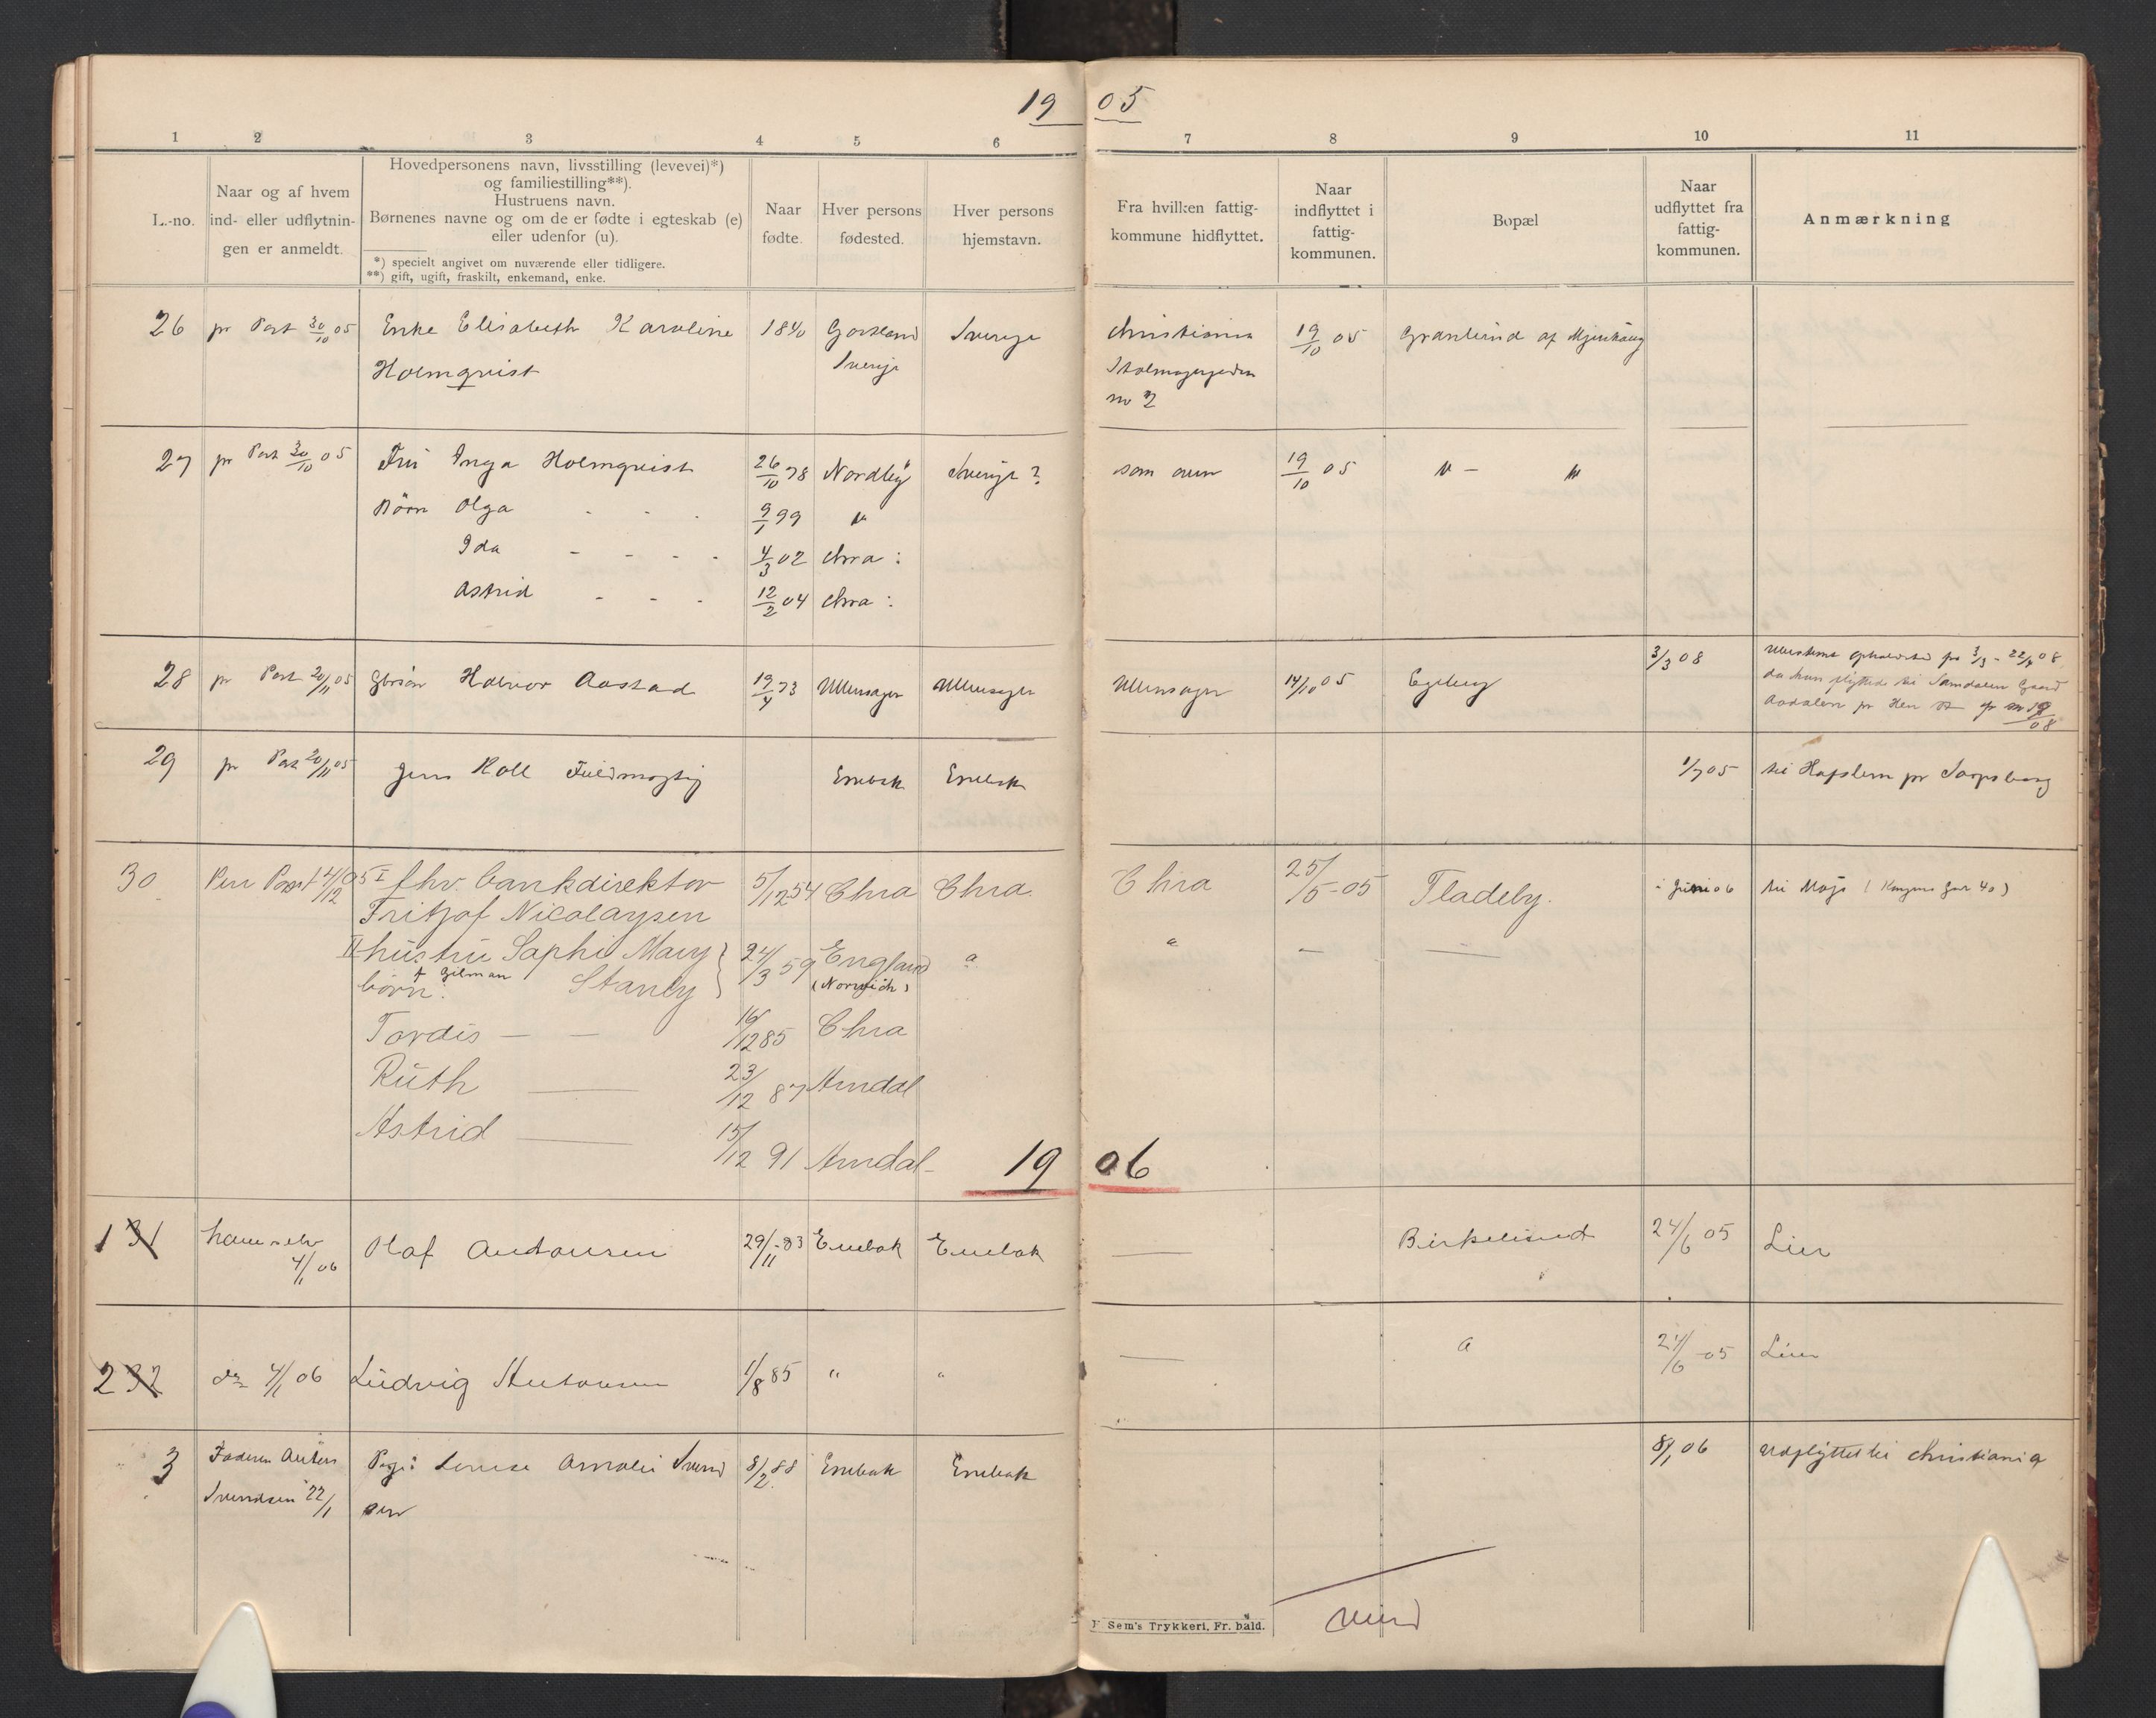 19 05
1 2 3 4 5 6 7 8 9 10 11
L.-no.
Naar og af hvem
ind- eller udflytnin-
gen er anmeldt.
Hovedpersonens navn, livsstilling (levevei)*)
og familiestilling**).
Hustruens navn.
Børnenes navne og om de er fødte i egteskab (e)
eller udenfor (u).
*) specielt angivet om nuværende eller tidligere.
**) gift, ugift, fraskilt, enkemand, enke.
Naar
fødte.
Hver persons
fødested.
Hver persons
hjemstavn.
Fra hvilken fattig-
kommune hidflyttet.
Naar
indflyttet i
fattig-
kommunen.
Bopæl
Naar
udflyttet fra
fattig-
kommunen.
Anmærkning
26 pr Post 30/10 05 Enke Elisabeth Karoline 1840 Sverige Christiania 19/10 05 Granlund af
Holmqvist Sverige
no 2
27 pr Post 30/10 05 Fru Inga Holmqvist 26/10 78 Nordby Sverige? som oven 19/10 05 " — "
Børn Olga - - - 9/1 99 "
Ida - - - - 4/3 02 Chra:
Astrid - - - 12/2 04 Chra:
28 pr Post 20/11 05 Halvor Aastad 19/4 73 Ullensager Ullensager Ullensager 14/10 05 Egeberg 3/3 08 3/3 - 22/4 08
da han flyttede til Samdalen Gaard
Aadalen pr Hen St
08
29 pr Post 20/11 05 Jens Koll Fuldmægtig Enebak Enebak 1/7 05 til Hafslern pr Sarpsborg
30 Per Post 4/12 05 I fhv. bankdirektor 5/12 54 Chra Chra. Chra 25/5-05 Fladeby. i Juni 06 til Moss (Kongens gad 40)
Fritjof Nicolaysen
II hustru Saphi Mary 24/3 59 England " " — —
børn: f Gilman Stanly (Norwich)
Tordis — — 16/12 85 Chra
Ruth — 23/12 87 Arndal
Astrid — 15/12 91 Arndal
19 06
1 31 4/1 06 Olaf Antonsen 29/11-83 Enebak Enebak — Birkelund 24/6 05 Lier
2 32 do 4/1 06 Ludvig Antonsen 1/8 85 " " — " 24/6-05 Lier
3 Faderen Anders Pige: Louise Amalie Svend 8/2 88 Enebak Enebak 8/1 06 Udflyttet til Christiania
Svendsen 22/1 sen
F Sem's Trykkeri, Fr.hald.